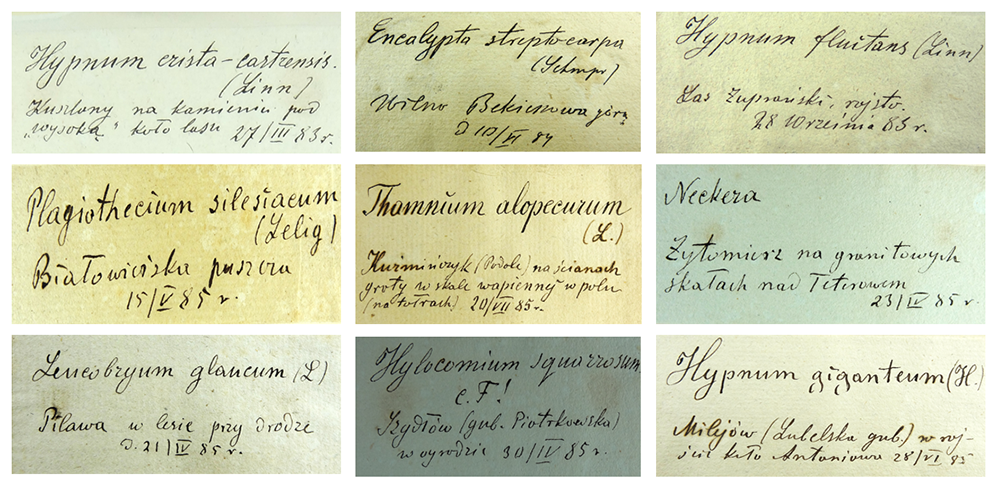 Hypnum crista-castrensis.
(Linn)
Kuszlany na kamieniu pod
„wysoką" koło lasu 27/III 83 r.
Encalypta streptocarpa
(Schmpr)
Wilno Bekieszowa góra
D 10/VI 84
Hypnum fluitans (Linn)
Las Żuprański, rojsto.
28 Września 83 r.
Plagiothecium silesiacum
(Selig)
Białowieska puszcza
15/V 85 r.
Thamnium alopecurum
(L.)
Kuźmińczyk (Podole) na ścianach
groty w skale wapiennej w polu
(na tołtrach) 20/VII 85 r.
Neckera
Żytomierz na granitowych
skałach nad Teterowem
23/IV 85 r.
Leucobryum glaucum (L)
Pilawa w lesie przy drodze
D. 21/IV 85 r.
Hylocomium squarrosum
c. F!
(gub. Piotrkowska)
w ogrodzie 30/IV 85 r.
Hypnum giganteum (H.)
Milejów (Lubelska gub.) w roj-
ście koło Antoniowa 28/VI 85